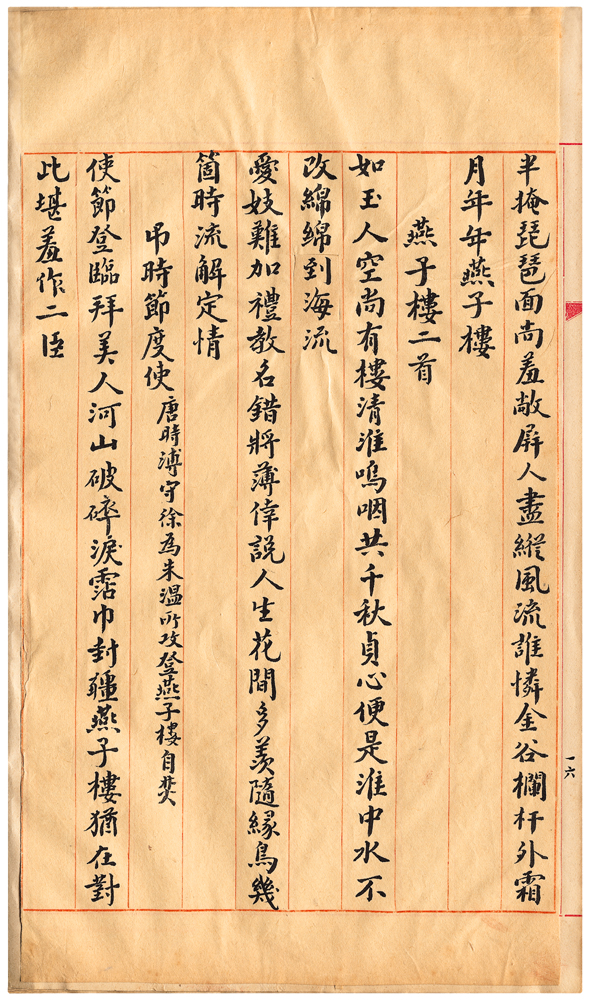 半掩琵琶面尚羞敞屏人盡縱風流誰憐金谷欄杆外霜
月年年燕子樓
燕子樓二首
如玉人空尚有樓清淮嗚咽共千秋貞心便是淮中水不
改綿綿到海流
愛妓難加禮教名錯將薄倖說人生花間多羨隨緣鳥幾
箇時流解定情
弔時節度使唐時溥守徐為朱溫所攻登燕子樓自焚
使節登臨拜美人河山破碎淚霑巾封疆燕子樓猶在對
此堪羞作二臣
一六